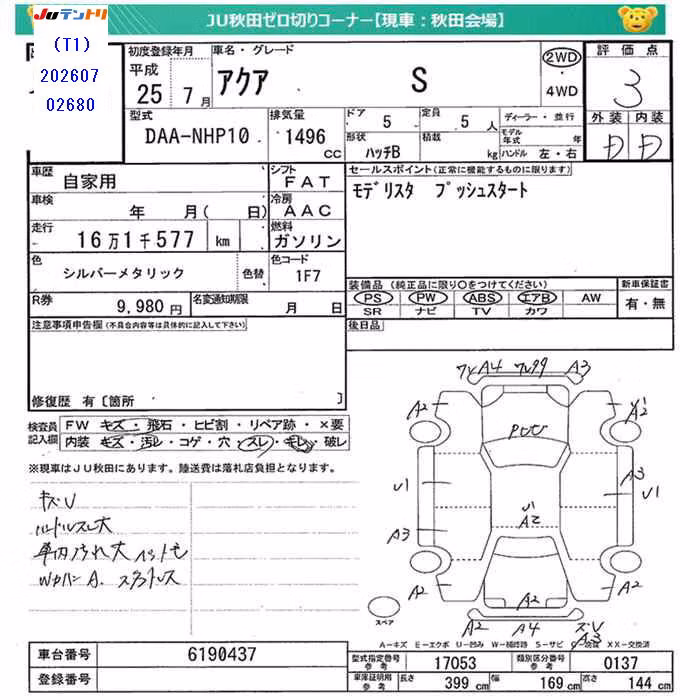 JUテントリ
JU秋田ゼロ切りコーナー【現車：秋田会場】
(T1)
202607
02680
初度登録年月
平成
25 7月
車名・グレード
アクア S
2WD
・
4WD
評価点
3
外装 内装
D D
型式
DAA-NHP10
排気量
1496
cc
ドア 5
定員 5人
形状 ハッチB
積載 kg
ディーラー・並行
モデル年式 年
ハンドル 左・右
車歴 自家用
シフト FAT
車検 年 月( 日)
冷房 AAC
走行 16万1千577 km
燃料 ガソリン
色 シルバーメタリック 色替
色コード 1F7
R券 9,980円
名変通知期限 月 日
セールスポイント(正常に機能するものに限ります)
モデリスタ プッシュスタート
装備品(純正品に限り〇をつけてください)
PS PW ABS エアB AW
SR ナビ TV カワ
新車保証書
有・無
後日品
注意事項申告欄(不具合内容等は具体的に記入して下さい)
修復歴 有〔箇所 〕
検査員記入欄
FW キズ・飛石・ヒビ割・リペア跡・×要
内装 キズ・汚レ・コゲ・穴・スレ・キレ・破レ
※現車はJU秋田にあります。陸送費は落札店負担となります。
キズU
ハンドルスレ大
車内汚れ大
A4 A3
A2 A2
U1 A3 U1
U1
A2
A3
A2 A2
A2
A2 A4 A3
スペア
A-キズ E-エクボ U-凹み W-補修跡 S-サビ XX-交換済
車台番号 6190437
登録番号
型式指定番号 参考 17053
類別区分番号 参考 0137
車庫証明用 参考 長さ 399cm 幅 169cm 高さ 144cm